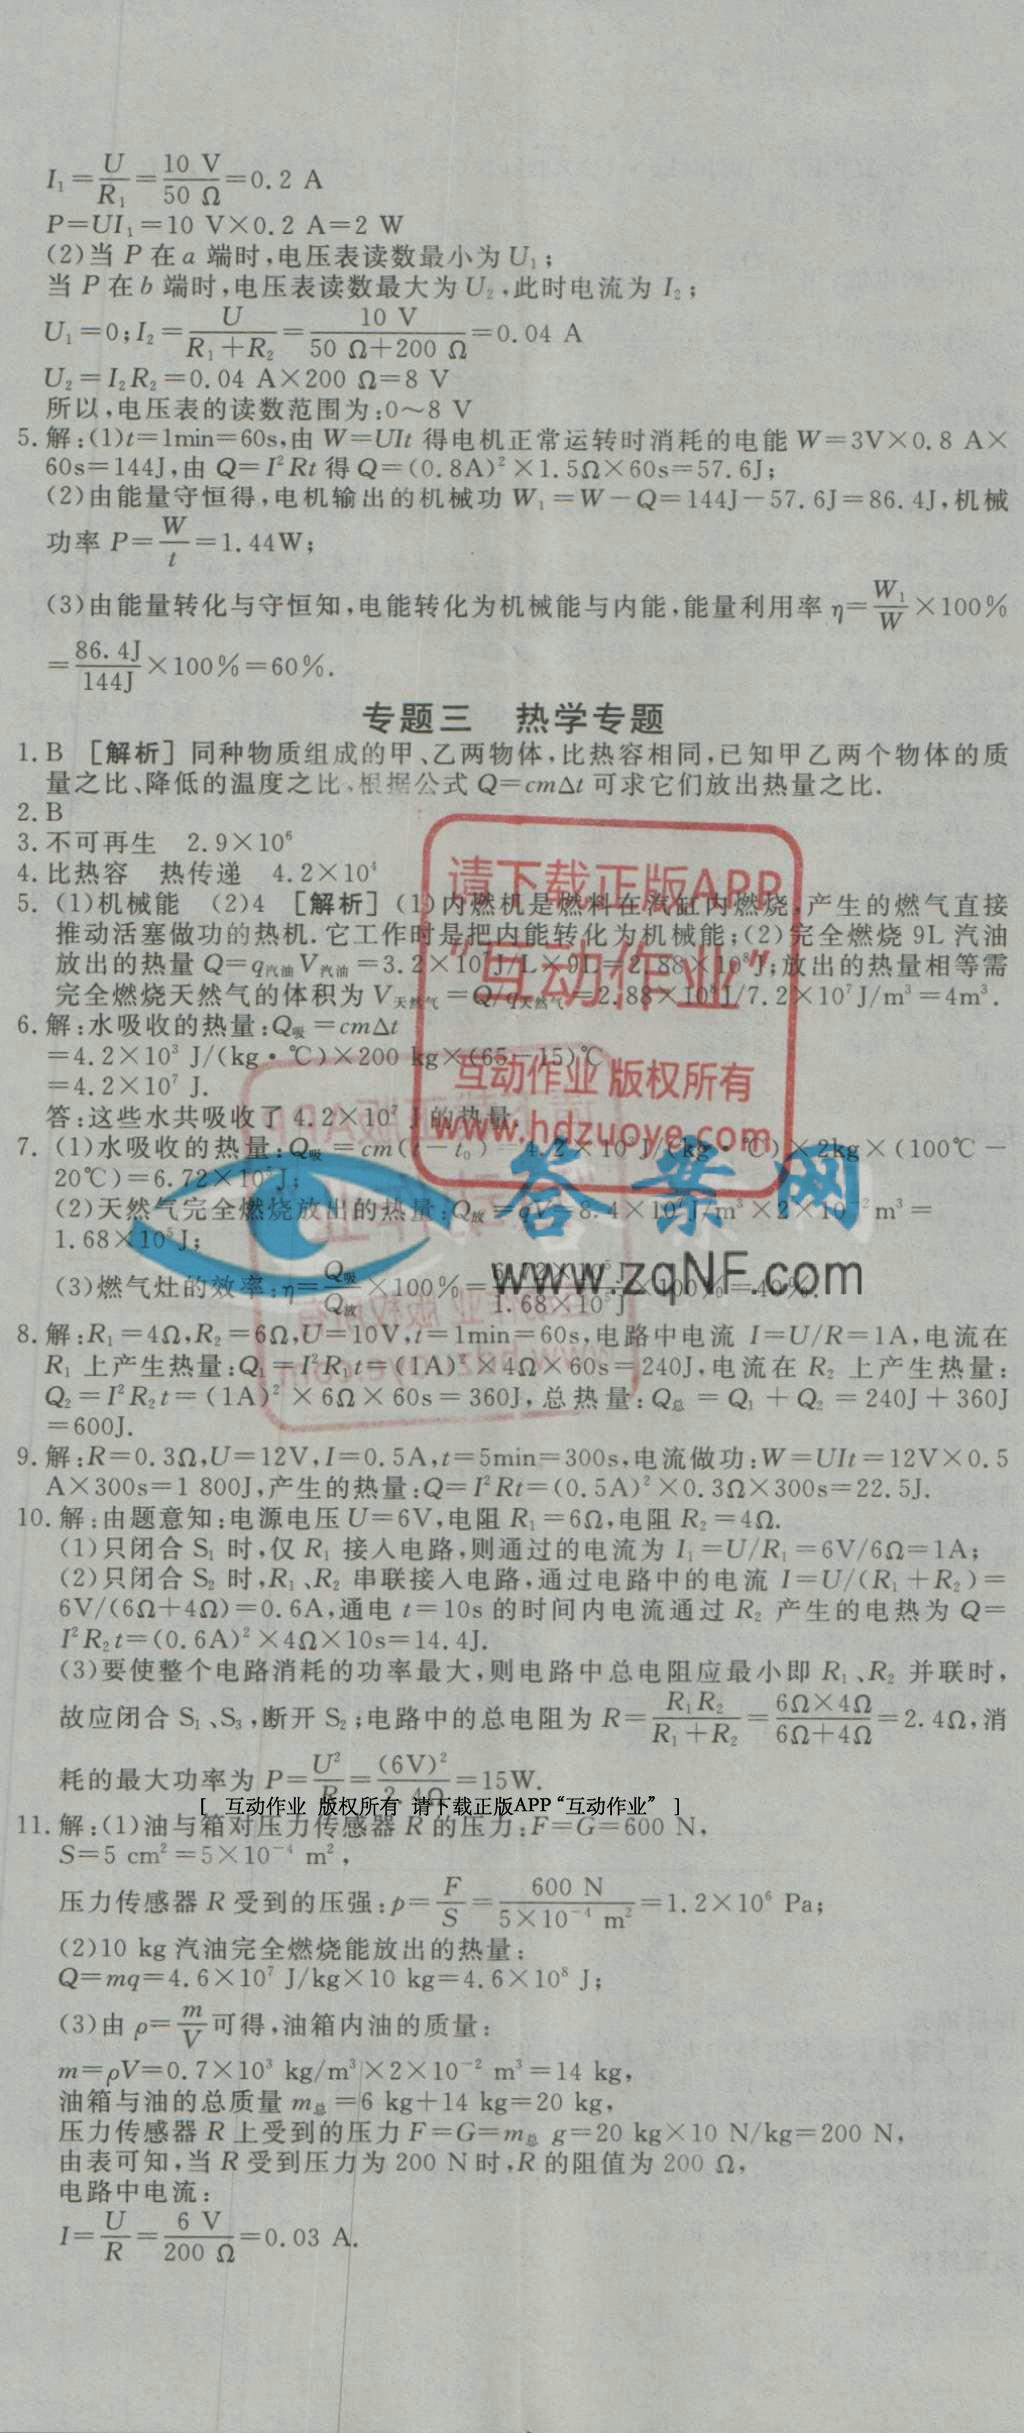 I₁=U/R₁=10 V/50 Ω=0.2 A
P=UI₁=10 V×0.2 A=2 W
(2)当 P 在 a 端时,电压表读数最小为 U₁;
当 P 在 b 端时,电压表读数最大为 U₂,此时电流为 I₂;
U₁=0;I₂=U/(R₁+R₂)=10 V/(50 Ω+200 Ω)=0.04 A
U₂=I₂R₂=0.04 A×200 Ω=8 V
所以,电压表的读数范围为:0～8 V
5.解:(1)t=1min=60s,由 W=UIt 得电机正常运转时消耗的电能 W=3V×0.8 A×
60s=144J,由 Q=I²Rt 得 Q=(0.8A)²×1.5Ω×60s=57.6J;
(2)由能量守恒得,电机输出的机械功 W₁=W-Q=144J-57.6J=86.4J,机械
功率 P=W/t=1.44W;
(3)由能量转化与守恒知,电能转化为机械能与内能,能量利用率 η=W₁/W×100%
=86.4J/144J×100%=60%.
专题三 热学专题
1.B [解析] 同种物质组成的甲、乙两物体,比热容相同,已知甲乙两个物体的质
量之比、降低的温度之比,根据公式 Q=cmΔt 可求它们放出热量之比.
2.B
3.不可再生 2.9×10⁶
4.比热容 热传递 4.2×10⁴
5.(1)机械能 (2)4 [解析] (1)内燃机是燃料在汽缸内燃烧,产生的燃气直接
推动活塞做功的热机.它工作时是把内能转化为机械能;(2)完全燃烧 9L 汽油
放出的热量 Q=q汽油V汽油=3.2×10⁷J/L×9L=2.88×10⁸J;放出的热量相等需
完全燃烧天然气的体积为 V天然气=Q/q天然气=2.88×10⁸J/7.2×10⁷J/m³=4m³.
6.解:水吸收的热量:Q吸=cmΔt
=4.2×10³ J/(kg·℃)×200 kg×(65-15)℃
=4.2×10⁷ J.
答:这些水共吸收了 4.2×10⁷ J 的热量.
7.(1)水吸收的热量:Q吸=cm(t-t₀)=4.2×10³J/(kg·℃)×2kg×(100℃-
20℃)=6.72×10⁵J;
(2)天然气完全燃烧放出的热量:Q放=qV=8.4×10⁷J/m³×2×10⁻²m³=
1.68×10⁵J;
(3)燃气灶的效率:η=Q吸/Q放×100%=
8.解:R₁=4Ω,R₂=6Ω,U=10V,t=1min=60s,电路中电流 I=U/R=1A,电流在
R₁ 上产生热量:Q₁=I²R₁t=(1A)²×4Ω×60s=240J,电流在 R₂ 上产生热量:
Q₂=I²R₂t=(1A)²×6Ω×60s=360J,总热量:Q总=Q₁+Q₂=240J+360J
=600J.
9.解:R=0.3Ω,U=12V,I=0.5A,t=5min=300s,电流做功:W=UIt=12V×0.5
A×300s=1 800J,产生的热量:Q=I²Rt=(0.5A)²×0.3Ω×300s=22.5J.
10.解:由题意知:电源电压 U=6V,电阻 R₁=6Ω,电阻 R₂=4Ω.
(1)只闭合 S₁ 时,仅 R₁ 接入电路,则通过的电流为 I₁=U/R₁=6V/6Ω=1A;
(2)只闭合 S₂ 时,R₁、R₂ 串联接入电路,通过电路中的电流 I=U/(R₁+R₂)=
6V/(6Ω+4Ω)=0.6A,通电 t=10s 的时间内电流通过 R₂ 产生的电热为 Q=
I²R₂t=(0.6A)²×4Ω×10s=14.4J.
(3)要使整个电路消耗的功率最大,则电路中总电阻应最小即 R₁、R₂ 并联时,
故应闭合 S₁、S₃,断开 S₂;电路中的总电阻为 R=R₁R₂/(R₁+R₂)=6Ω×4Ω/(6Ω+4Ω)=2.4Ω,消
耗的最大功率为 P=U²/R=(6V)²/2.4Ω=15W.
[ 互动作业 版权所有 请下载正版APP“互动作业” ]
11.解:(1)油与箱对压力传感器 R 的压力:F=G=600 N,
S=5 cm²=5×10⁻⁴ m²,
压力传感器 R 受到的压强:p=F/S=600 N/(5×10⁻⁴ m²)=1.2×10⁶ Pa;
(2)10 kg 汽油完全燃烧能放出的热量:
Q=mq=4.6×10⁷ J/kg×10 kg=4.6×10⁸ J;
(3)由 ρ=m/V可得,油箱内油的质量:
m=ρV=0.7×10³ kg/m³×2×10⁻² m³=14 kg,
油箱与油的总质量 m总=6 kg+14 kg=20 kg,
压力传感器 R 上受到的压力 F=G=m总 g=20 kg×10 N/kg=200 N,
由表可知,当 R 受到压力为 200 N时,R 的阻值为 200 Ω,
电路中电流:
I=U/R=6 V/200 Ω=0.03 A.
请下载正版APP
“互动作业”
互动作业 版权所有
www.hdzuoye.com
答案网
www.zqNF.com